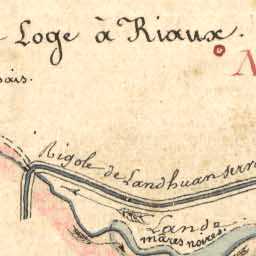 Loge à Riaux.
Rigole de Landhuan
Lande
mâres noires